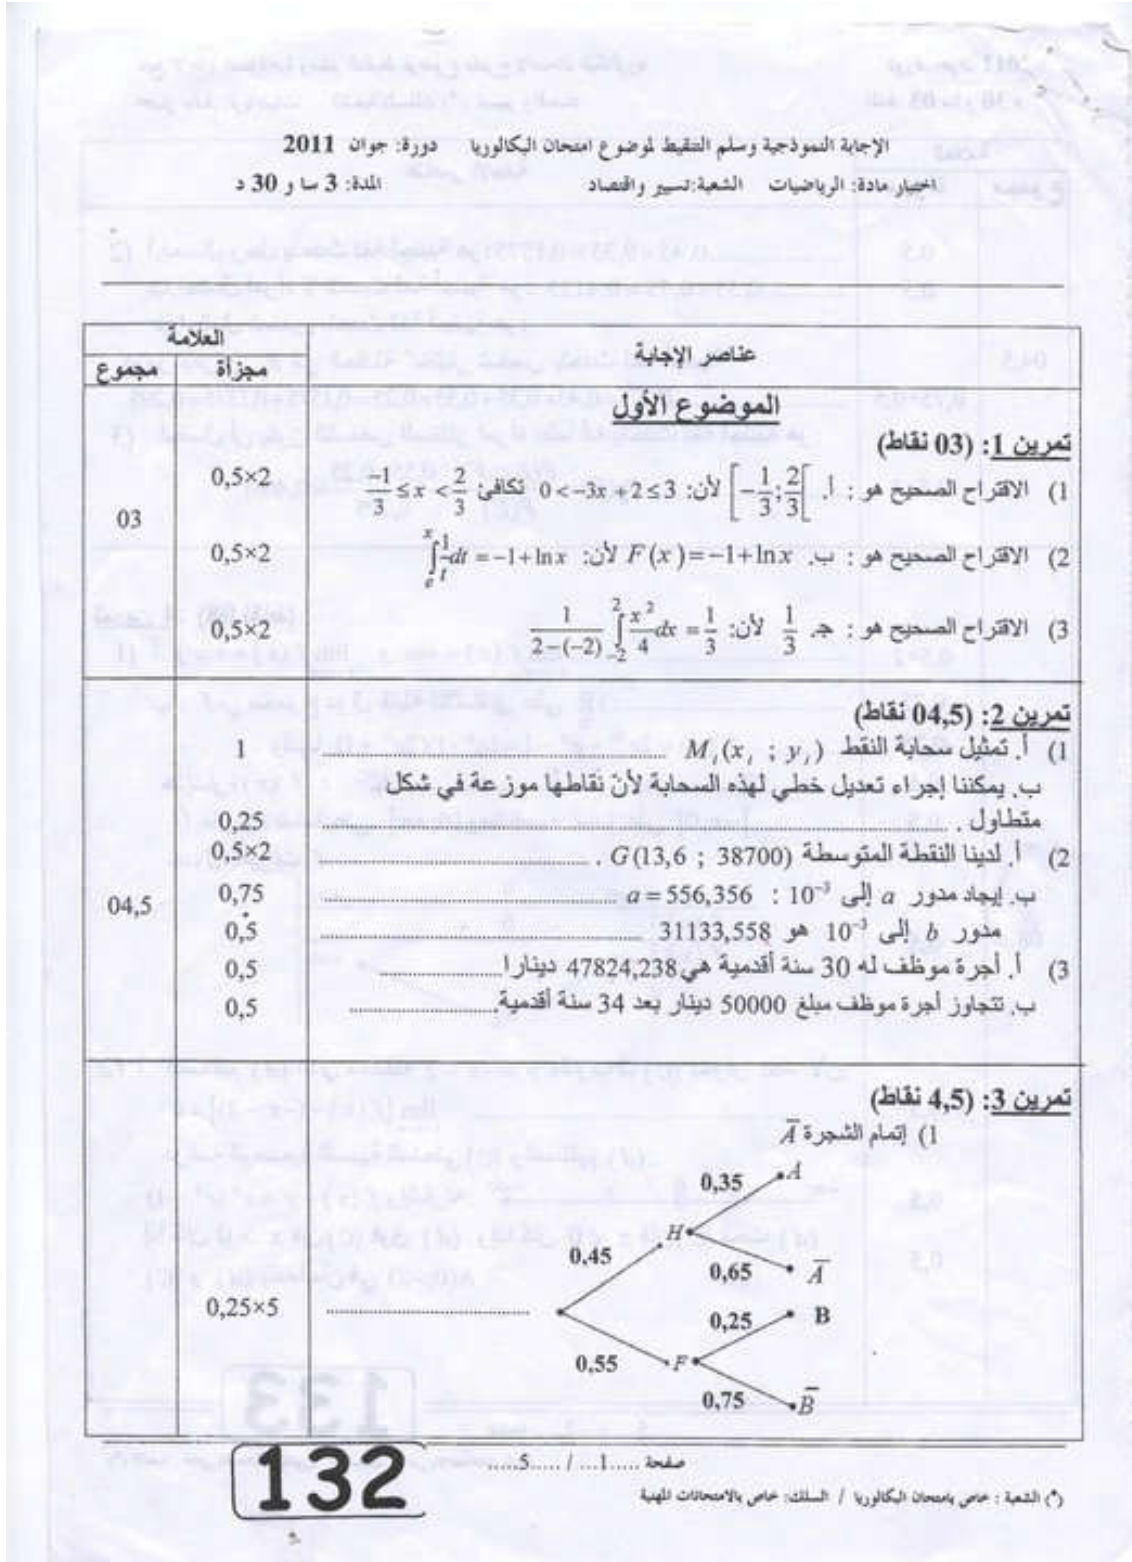 الإجابة النموذجية وسلم التنقيط لموضوع امتحان البكالوريا دورة: جوان 2011
اختبار مادة: الرياضيات الشعبة: تسيير واقتصاد المدة: 3 سا و 30 د
عناصر الإجابة العلامة
مجزأة مجموع
الموضوع الأول
تمرين 1: (03 نقاط)
1) الاقتراح الصحيح هو : أ. [-1/3;2/3[ لأن: 0<-3x+2≤3 تكافئ: -1/3≤x<2/3 0,5×2
03
2) الاقتراح الصحيح هو : ب. F(x)=-1+ln x لأن: ∫_e^x 1/t dt=-1+ln x 0,5×2
3) الاقتراح الصحيح هو : جـ 1/3 لأن: 1/(2-(-2)) ∫_{-2}^{2} x²/4 dx = 1/3 0,5×2
تمرين 2: (04,5 نقاط)
1) أ. تمثيل سحابة النقط M_i(x_i ; y_i) .......... 1
ب. يمكننا إجراء تعديل خطي لهذه السحابة لأن نقاطها موزعة في شكل
متطاول . .......... 0,25
2) أ. لدينا النقطة المتوسطة G(13,6 ; 38700) . .......... 0,5×2
ب. إيجاد مدور a إلى 10⁻³ : a=556,356 .......... 0,75
04,5
مدور b إلى 10⁻³ هو 31133,558 .......... 0,5
3) أ. أجرة موظف له 30 سنة أقدمية هي 47824,238 دينارا .......... 0,5
ب. تتجاوز أجرة موظف مبلغ 50000 دينار بعد 34 سنة أقدمية. .......... 0,5
تمرين 3: (4,5 نقاط)
1) إتمام الشجرة A̅
0,35 A
H
0,45 0,65 A̅
0,25 B
0,25×5 ..........
0,55 F
0,75 B̅
صفحة .....1... / .....5.....
132
(*) الشعبة : خاص بامتحان البكالوريا / السلك: خاص بالامتحانات المهنية